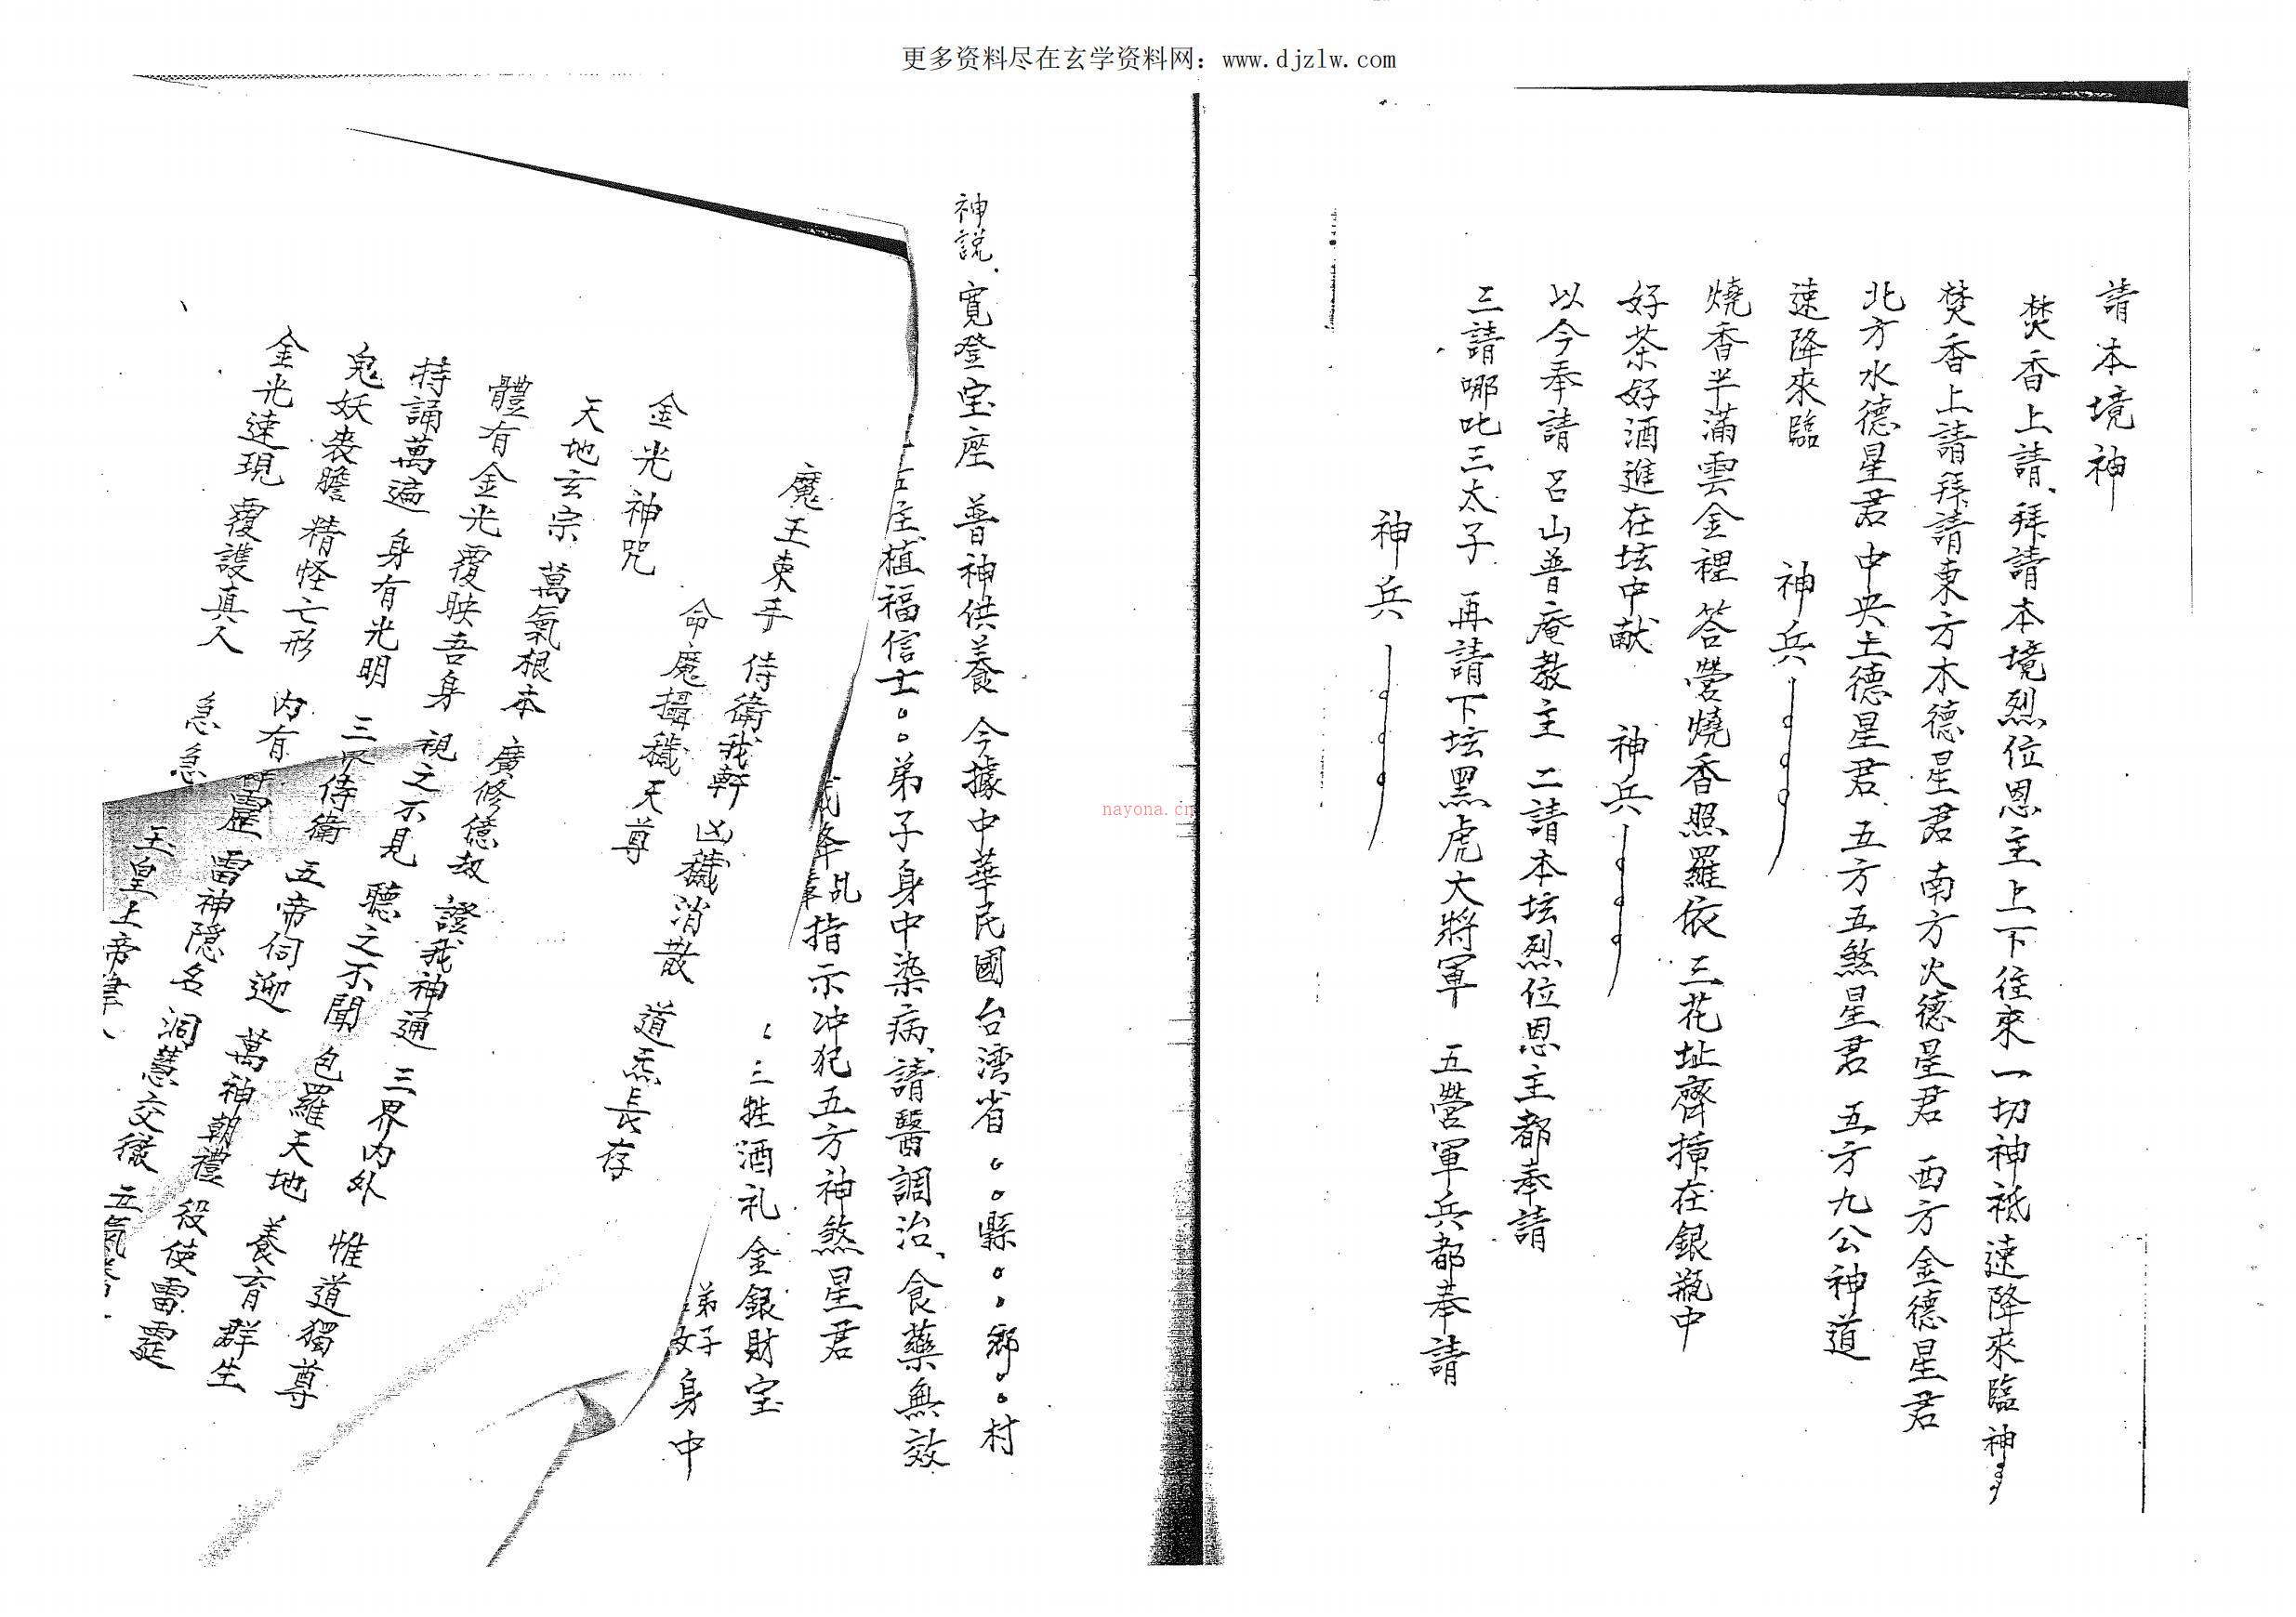 更多资料尽在玄学资料网：www.djzlw.com
請本境神
焚香上請、拜請本境烈位恩主上下往來一切神祗速降來臨神
焚香上請拜請東方木德星君 南方火德星君 西方金德星君
北方水德星君 中央土德星君 五方五煞星君 五方九公神道
速降來臨 神兵
燒香半滿雲金裡 答營燒香照羅依 三花址齊插在銀瓶中
好茶好酒進在坛中献 神兵
以今奉請 呂山普庵教主 二請本坛烈位恩主都奉請
三請哪叱三太子 再請下坛黑虎大將軍 五營軍兵都奉請
神兵
神説、寬登宝座 普神供養 今據中華民國台湾省。。縣。。鄉。。村
植福信士。。弟子身中染病、請醫調治、食藥無效
降乩指示冲犯五方神煞星君
三牲酒礼金銀財宝
弟子身中
魔王束手 侍衛我軒 凶穢消散 道炁長存
命魔攝穢天尊
金光神咒
天地玄宗 萬氣根本 廣修億劫 證我神通 三界内外 惟道獨尊
體有金光 覆映吾身 視之不見 聽之不聞 包羅天地 養育群生
持誦萬遍 身有光明 三界侍衛 五帝伺迎 萬神朝禮 役使雷霆
鬼妖喪膽 精怪亡形 内有霹靂 雷神隱名 洞慧交徹 五氣
金光速現 覆護真人 急急 玉皇上帝律
nayona.cn